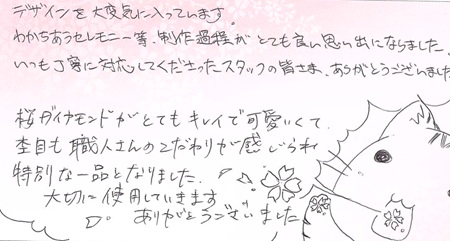 デザインを大変気に入っています。
わかちあうセレモニー等、制作過程がとても良い思い出になりました。
いつも丁寧に対応してくださったスタッフの皆さま、ありがとうございました
桜ダイヤモンドがとてもキレイで可愛いくて、
杢目も職人さんのこだわりが感じられ
特別な一品となりました。
大切に使用していきます
ありがとうございました